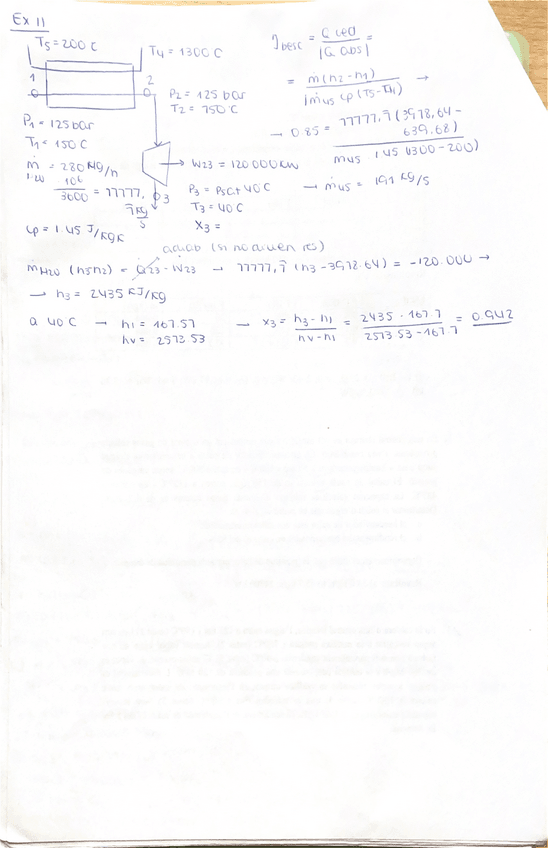 Ex 11
T5 = 200 C
T4 = 1300 C
1
2
P2 = 125 bar
T2 = 750 C
P1 = 125 bar
T1 = 150 C
ṁ = 280 kg/h
H20
10⁶/3600 = 77777,7̄ kg/s
W23 = 120000 kW
3
P3 = Psat 40 C
T3 = 40 C
X3 =
cp = 1.45 J/kgK
= Q ced / |Q abs| =
= m(h2-h1) / |ṁ45 cp (T5-T4)| →
→ 0.85 = 77777,7̄ (3978,64 - 639.68) / m45 1,45 (1300-200)
→ ṁ45 = 191 kg/s
adiab (si no diuen res)
ṁH20 (h3-h2) = Q̇23 - Ẇ23 → 77777,7̄ (h3 - 3978.64) = -120.000 →
→ h3 = 2435 KJ/Kg
a 40 C → hl = 167.57
hv = 2573.53
→ x3 = h3 - hl / hv - hl = 2435 - 167.7 / 2573.53 - 167.7 = 0.942